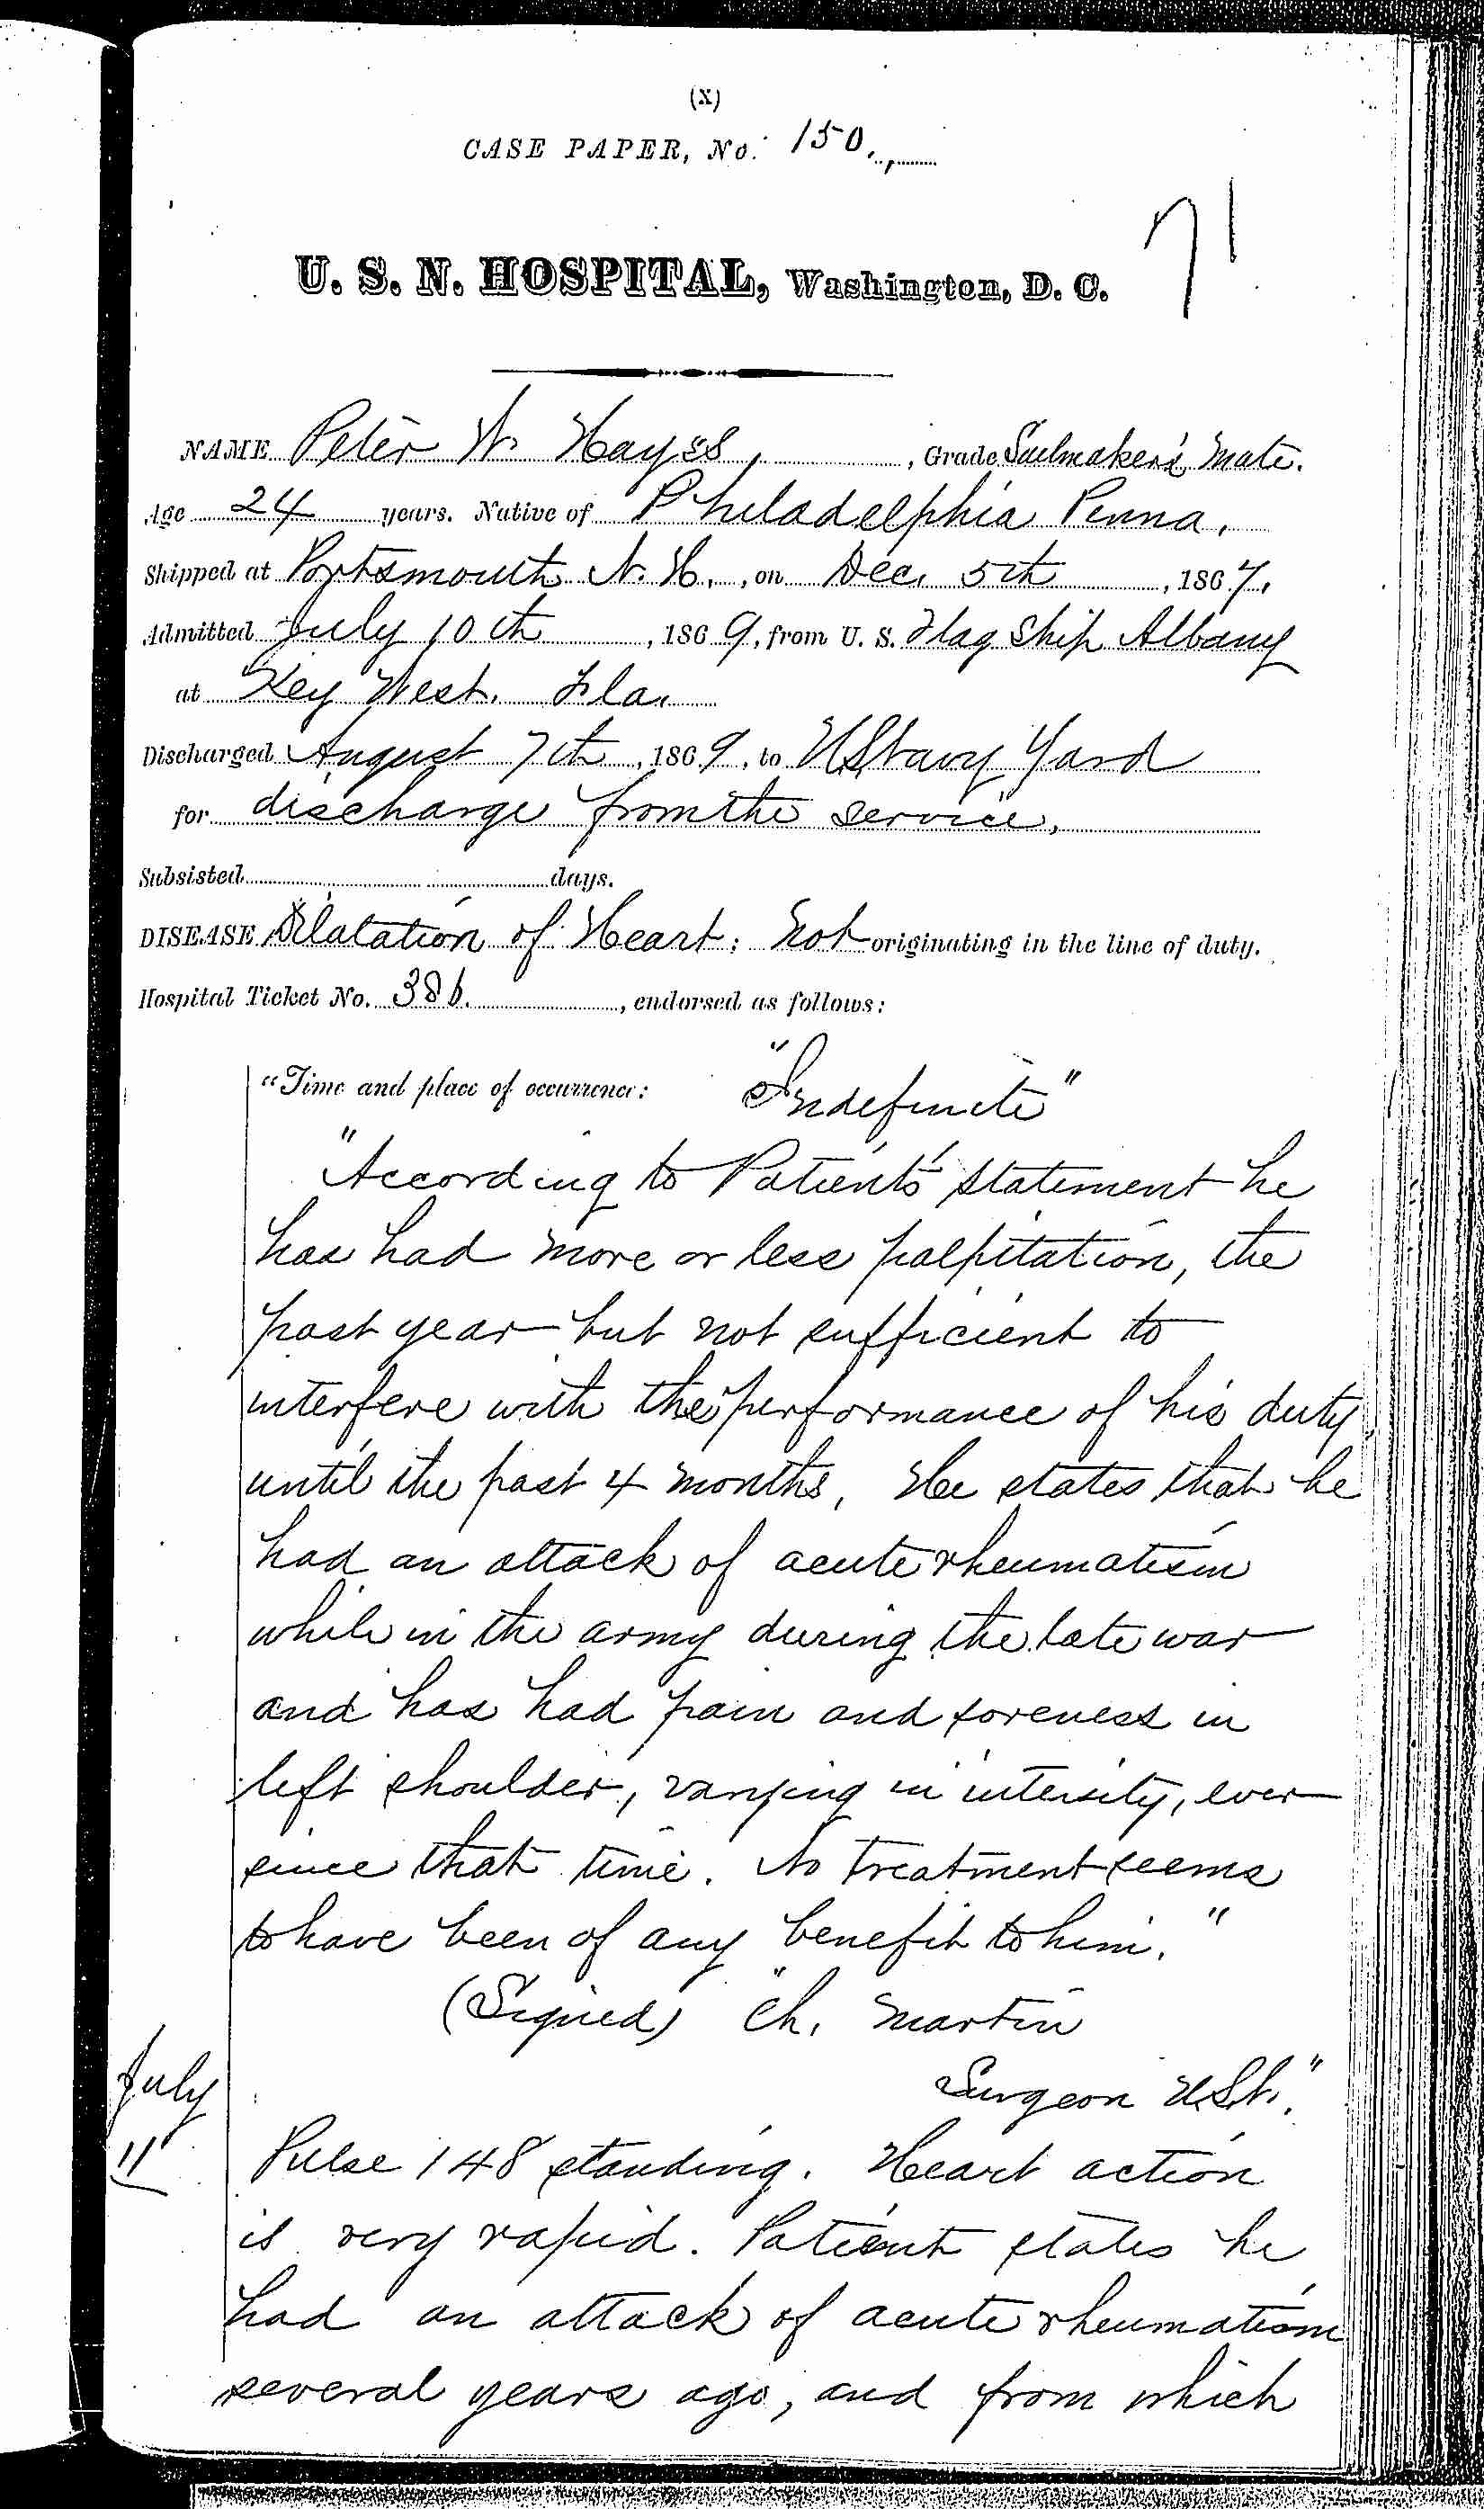 (X)
CASE PAPER, No. 150.
71
U. S. N. HOSPITAL, Washington, D. C.
NAME Peter W. Hayes, Grade Sailmaker's Mate.
Age 24 years. Native of Philadelphia Penna.
Shipped at Portsmouth N. H., on Dec. 5th, 1867.
Admitted July 10th, 1869, from U. S. Flag Ship Albany
at Key West. Fla.
Discharged August 7th, 1869, to U.S. Navy Yard
for discharge from the service.
Subsisted days.
DISEASE Dilatation of Heart: Not originating in the line of duty.
Hospital Ticket No. 386., endorsed as follows:
"Time and place of occurrence: "Indefinite"
"According to Patient's statement he
has had more or less palpitation, the
past year but not sufficient to
interfere with the performance of his duty,
until the past 4 months, He states that he
had an attack of acute rheumatism
while in the army during the late war
and has had pain and soreness in
left shoulder, varying in intensity, ever
since that time. No treatment seems
to have been of any benefit to him."
(Signed) "Ch. Martin
Surgeon U.S.N."
July
11 Pulse 148 standing. Heart action
is very rapid. Patient states he
had an attack of acute rheumatism
several years ago, and from which